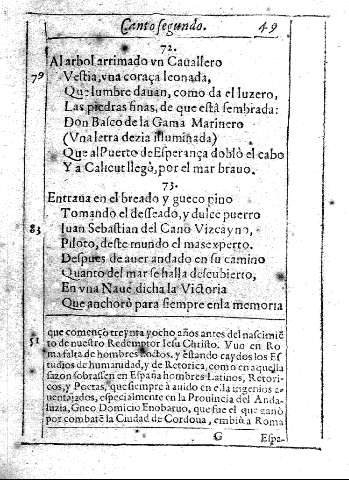 Canto segundo. 49
72.
Al arbol arrimado vn Cauallero
79 Vestia, vna coraça leonada,
Que lumbre dauan, como da el luzero,
Las piedras finas, de que està sembrada:
Don Basco de la Gama Marinero
(Vna letra dezia illuminada)
Que al Puerto de Esperança doblò el cabo
Y a Calicut llegò, por el mar brauo.
73.
Entraua en el breado y gueco pino
Tomando el desseado, y dulce puerro
83 Iuan Sebastian del Cano Vizcayno,
Piloto, deste mundo el mas experto.
Despues de auer andado en su camino
Quanto del mar se halla descubierto,
En vna Naue, dicha la Victoria
Que anchorò para siempre en la memoria
que començò treynta y ocho años antes del nascimiē
51 to de nuestro Redemptor Iesu Christo. Vuo en Ro
ma falta de hombres doctos, y estando caydos los Es
tudios de humanidad, y de Retorica, como en aquella
sazon sobrassen en España hombres Latinos, Retori-
cos, y Poetas, que siempre à auido en ella ingenios a-
uentajados, especialmente en la Prouincia del Anda-
luzia, Gneo Domicio Enobaruo, que fue el que ganò
por combatē la Ciudad de Cordoua, embiò a Roma
G Espa-